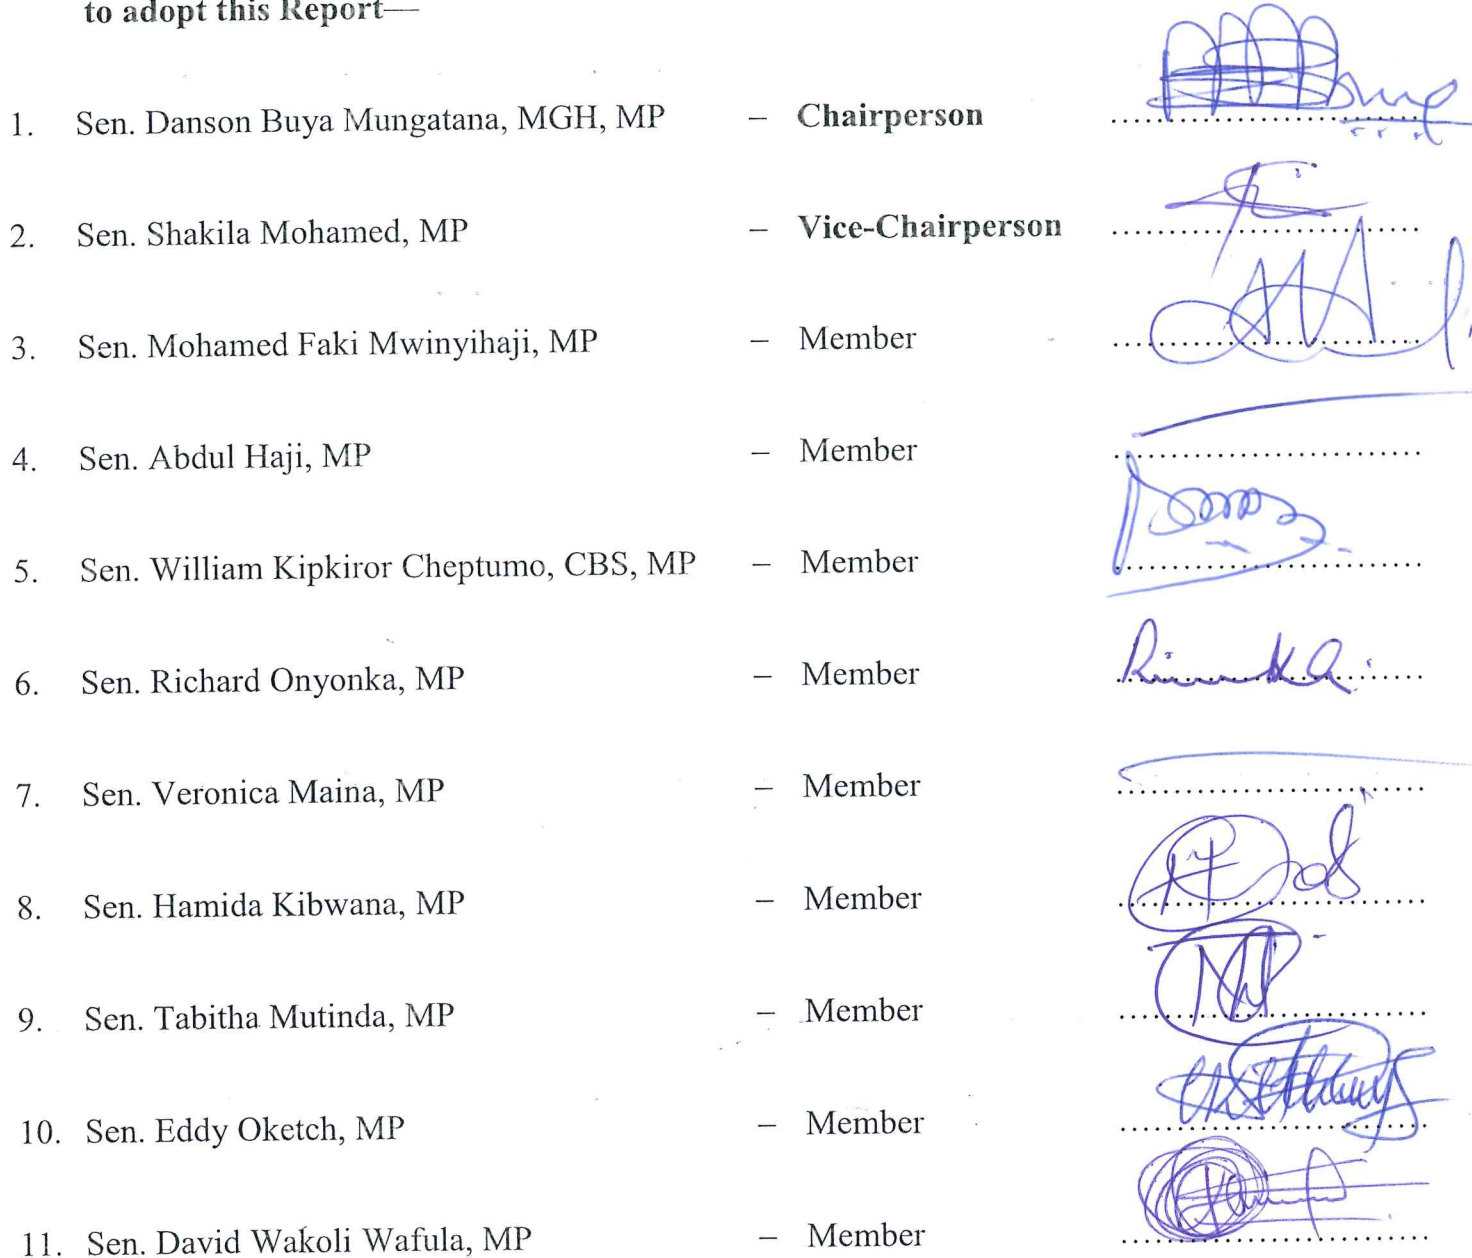 to adopt this Report—
1. Sen. Danson Buya Mungatana, MGH, MP – Chairperson
2. Sen. Shakila Mohamed, MP – Vice-Chairperson
3. Sen. Mohamed Faki Mwinyihaji, MP – Member
4. Sen. Abdul Haji, MP – Member
5. Sen. William Kipkiror Cheptumo, CBS, MP – Member
6. Sen. Richard Onyonka, MP – Member
7. Sen. Veronica Maina, MP – Member
8. Sen. Hamida Kibwana, MP – Member
9. Sen. Tabitha Mutinda, MP – Member
10. Sen. Eddy Oketch, MP – Member
11. Sen. David Wakoli Wafula, MP – Member